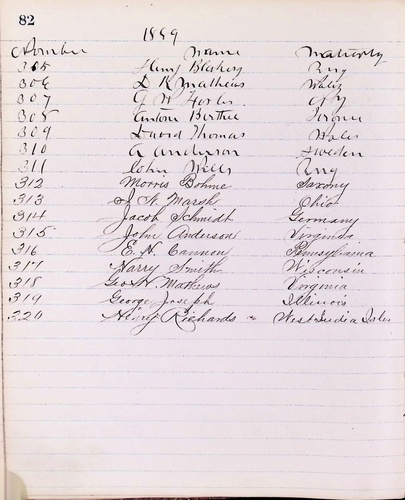 82
1889
Number Name Nativity
305 Henry Eng
306 D R Mathews Wales
307 G W N Y
308 Antone Berthe
309 David Thomas Wales
310 A Anderson Sweden
311 John Wells Eng
312 Morris Bohme Saxony
313 J. N. Marsh Ohio
314 Jacob Schmidt Germany
315 John Anderson Virginia
316 E. H. Cannon Pennsylvania
317 Harry Smith Wisconsin
318 Geo W. Mathews Virginia
319 George Joseph Illinois
320 Henry Richards West India Isles